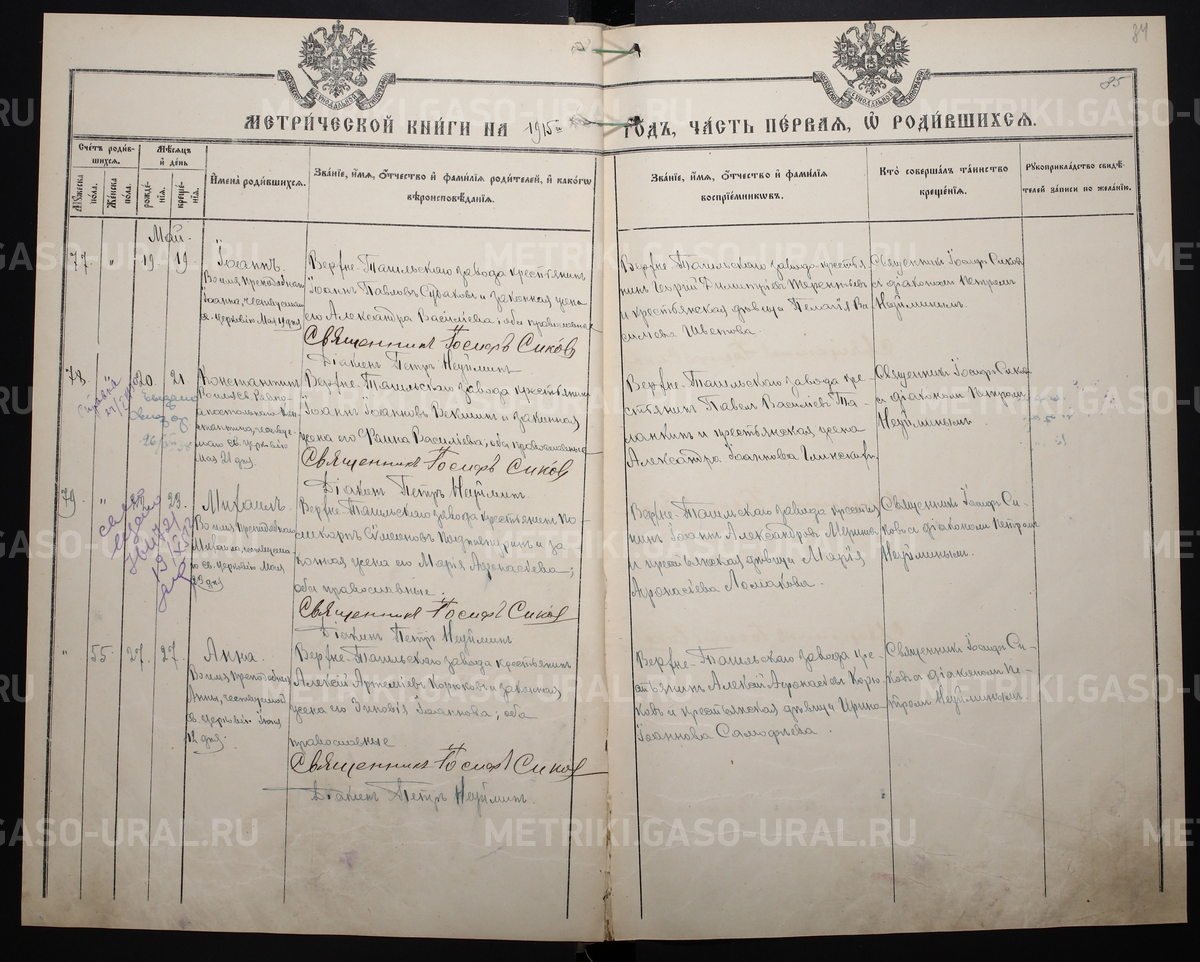 84
85
МЕТРИ́ЧЕСКОЙ КНИ́ГИ НА 1915й ГОДЪ, ЧА́СТЬ ПЕ́РВАЯ, Ѡ РОДИ́ВШИХСЯ.
Сче́тъ роди́в-
шихся.
Мѣ́сяцъ
и҆ де́нь
Мꙋ́жеска
по́ла.
Же́нска
по́ла.
рожде́-
нїя.
креще́-
нїя.
И҆мена̀ роди́вшихся.
Зва́нїе, и҆́мя, ѻ҆́тчество и҆ фами́лїя роди́телей, и҆ како́гѡ
вѣроисповѣ́данїя.
Зва́нїе, и҆́мя, ѻ҆́тчество и҆ фами́лїя
воспрїе́мникѡвъ.
Кто̀ соверша́лъ та́инство
креще́нїя.
Рꙋкоприкла́дство свидѣ́-
телей за́писи по жела́нїю.
Май.
77. " 19 19
Іоаннъ.
Во имя Преподобнаго
Іоанна, чествуемаго
св. Церковію Мая 19 дня
Верхне-Тагильскаго завода крестьянинъ
Іоаннъ Павловъ Судаковъ и законная жена
его Александра Василіева; оба православные
Священникъ Іосифъ Сиковъ
Діаконъ Петръ Неуйминъ
Верхне-Тагильскаго завода крестья-
нинъ Георгій Димитріевъ Терентьевъ
и крестьянская дѣвица Пелагія Ва-
силіева Ивакова.
Священникъ Іосифъ Сиковъ
съ діакономъ Петромъ
Неуйминымъ.
78. " 20. 21
Константинъ
Мая 21 дня.
Верхне-Тагильскаго завода крестьянинъ
Іоаннъ Іоанновъ Векшинъ и законная
жена его Фаина Василіева; оба православные
Священникъ Іосифъ Сиковъ
Діаконъ Петръ Неуйминъ.
Верхне-Тагильскаго завода кре-
стьянинъ Павелъ Василіевъ Та-
ланкинъ и крестьянская жена
Александра Іоаннова
Священникъ Іосифъ Сиковъ
съ діакономъ Петромъ
Неуйминымъ
79. " 23.
Михаилъ.
Во имя Преподобнаго
Михаила, чествуема-
го св. Церковію Мая
23 дня
Верхне-Тагильскаго завода крестьянинъ По-
ликарпъ Симеоновъ и за-
конная жена его Марія Аѳонасіева;
оба православные.
Священникъ Іосифъ Сиковъ
Діаконъ Петръ Неуйминъ
Верхне-Тагильскаго завода крестья-
нинъ Іоаннъ Александровъ
и крестьянская дѣвица Марія
Аѳонасіева Ломакова.
Священникъ Іосифъ Си-
ковъ съ діакономъ Петромъ
Неуйминымъ.
" 55. 27. 27.
Анна.
Во имя Преподобной
Анны, чествуемой
св. Церковію Іюня
12 дня.
Верхне-Тагильскаго завода крестьянинъ
Алексій Артеміевъ Корюковъ и законная
жена его Зиновія Іоаннова; оба
православные
Священникъ Іосифъ Сиковъ
Діаконъ Петръ Неуйминъ.
Верхне-Тагильскаго завода кре-
стьянинъ Алексій Аѳонасіевъ Корю-
ковъ и крестьянская дѣвица Ирина
Іоаннова Самофѣева.
Священникъ Іосифъ Си-
ковъ съ діакономъ Пе-
тромъ Неуйминымъ
METRIKI.GASO-URAL.RU